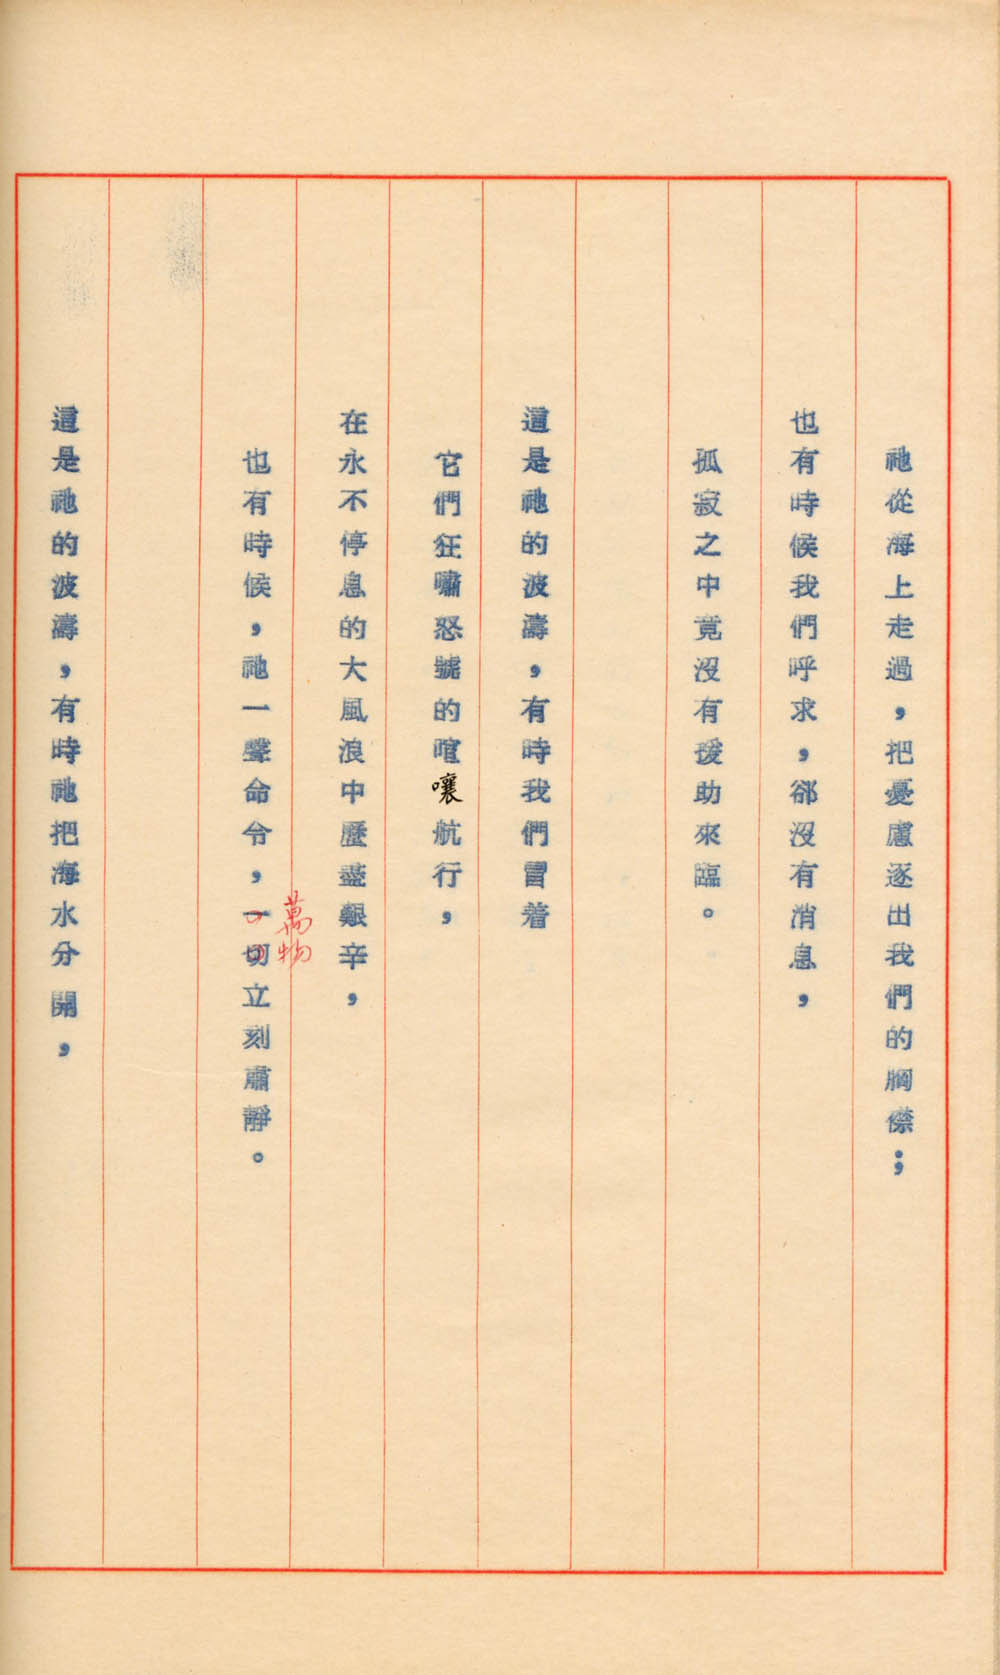 祂從海上走過，把憂慮逐出我們的胸襟；
也有時候我們呼求，卻沒有消息，
孤寂之中竟沒有援助來臨。
這是祂的波濤，有時我們冒着
它們狂嘯怒號的喧嚷航行，
在永不停息的大風浪中歷盡艱辛，
萬物
也有時候，祂一聲命令，一切立刻肅靜。
這是祂的波濤，有時祂把海水分開，